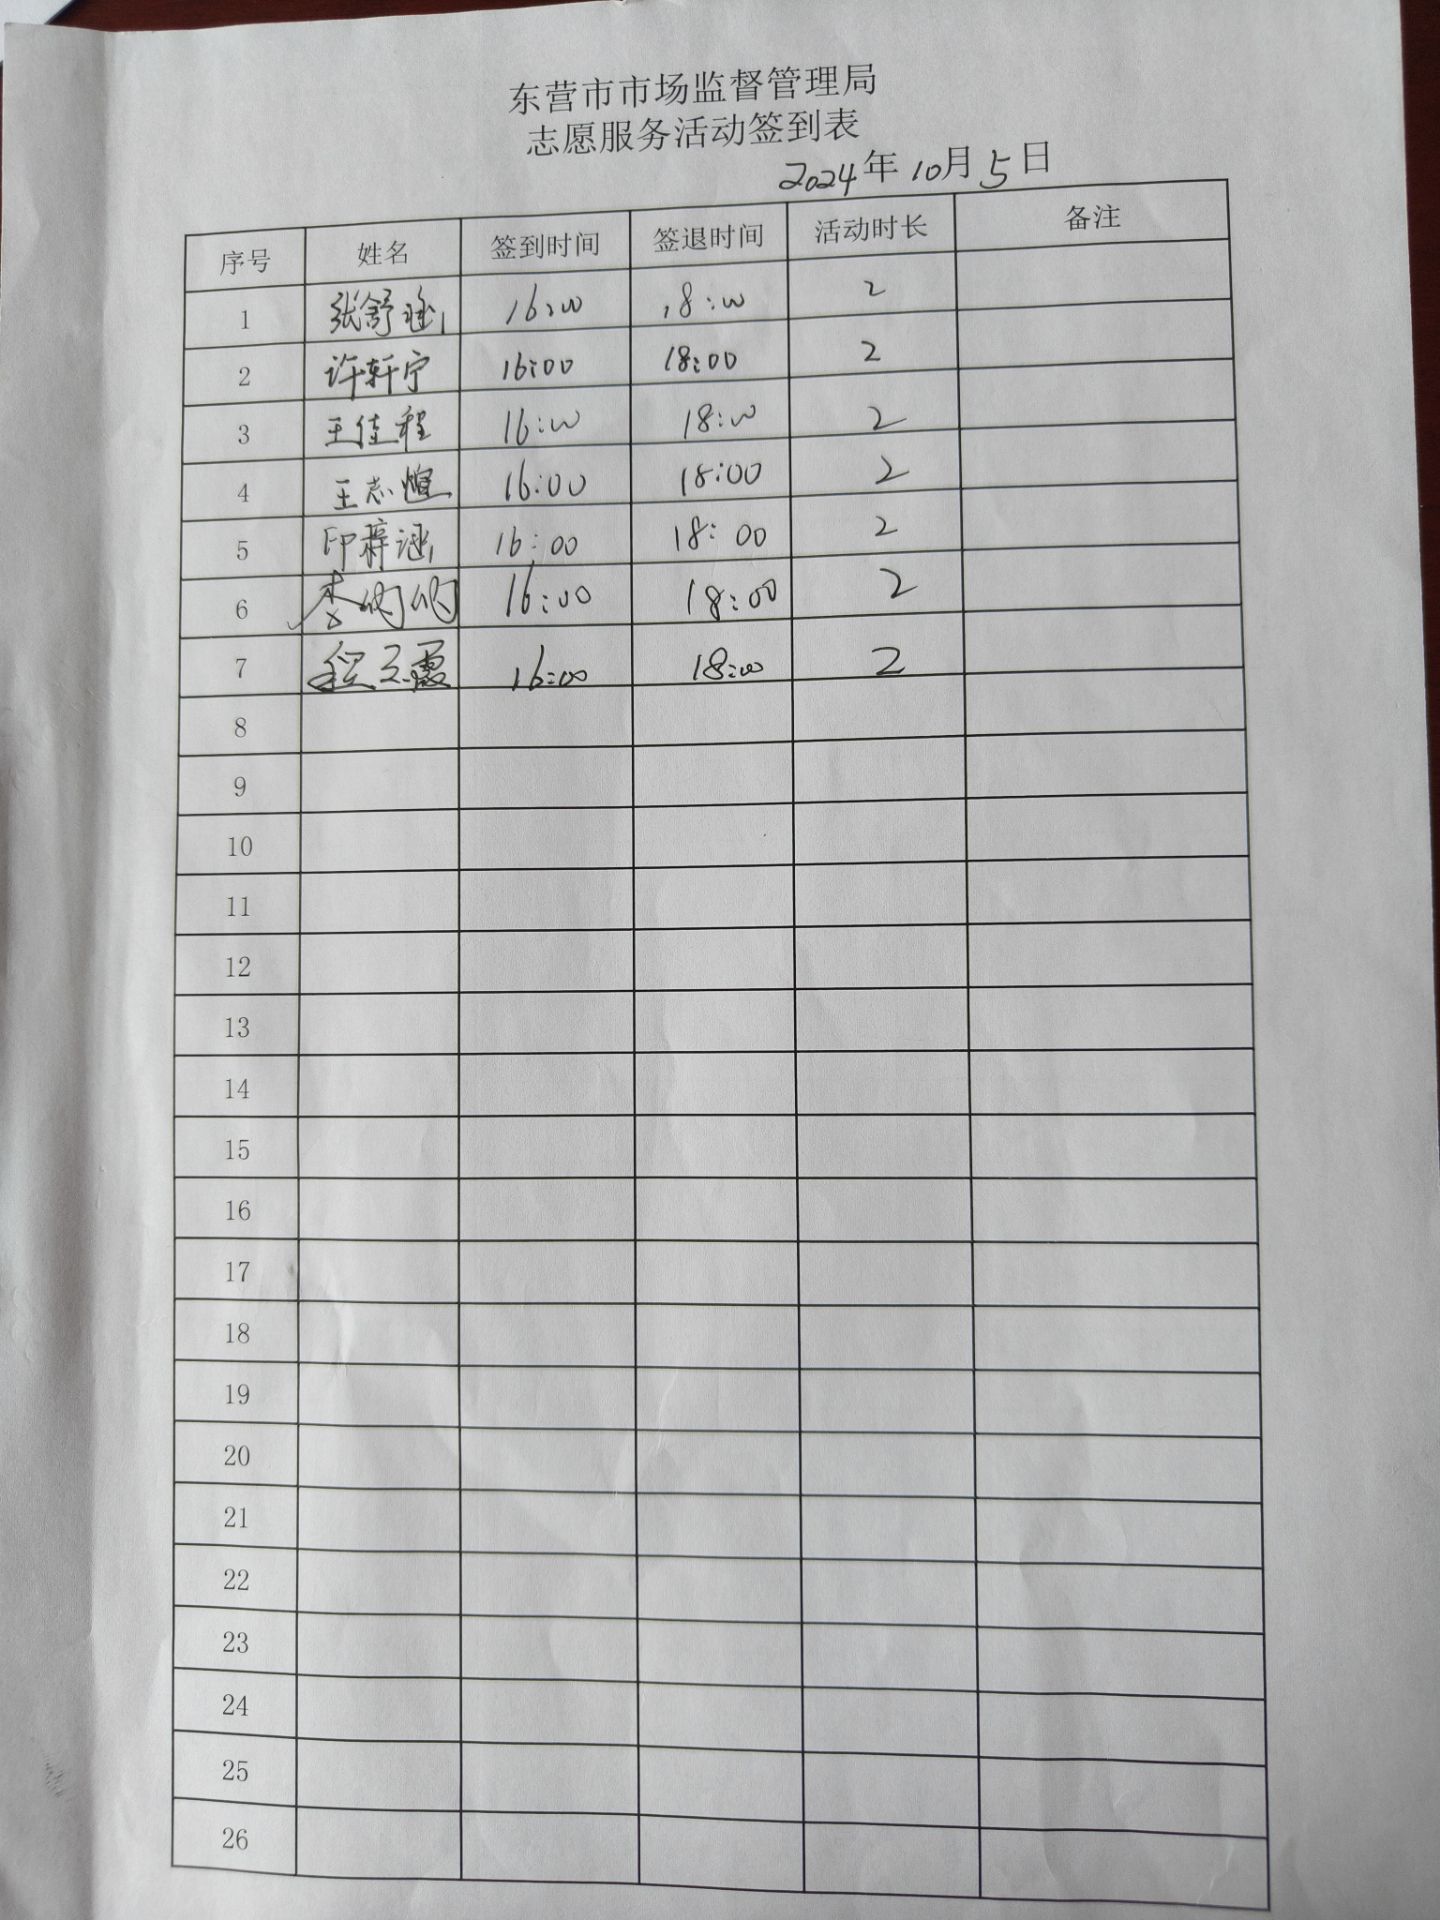 东营市市场监督管理局
志愿服务活动签到表
2024年10月5日
序号 姓名 签到时间 签退时间 活动时长 备注
1 张舒涵 16:00 18:00 2
2 许轩宁 16:00 18:00 2
3 王佳程 16:00 18:00 2
4 王志愃 16:00 18:00 2
5 印梓涵 16:00 18:00 2
6 李 16:00 18:00 2
7 程 16:00 18:00 2
8
9
10
11
12
13
14
15
16
17
18
19
20
21
22
23
24
25
26